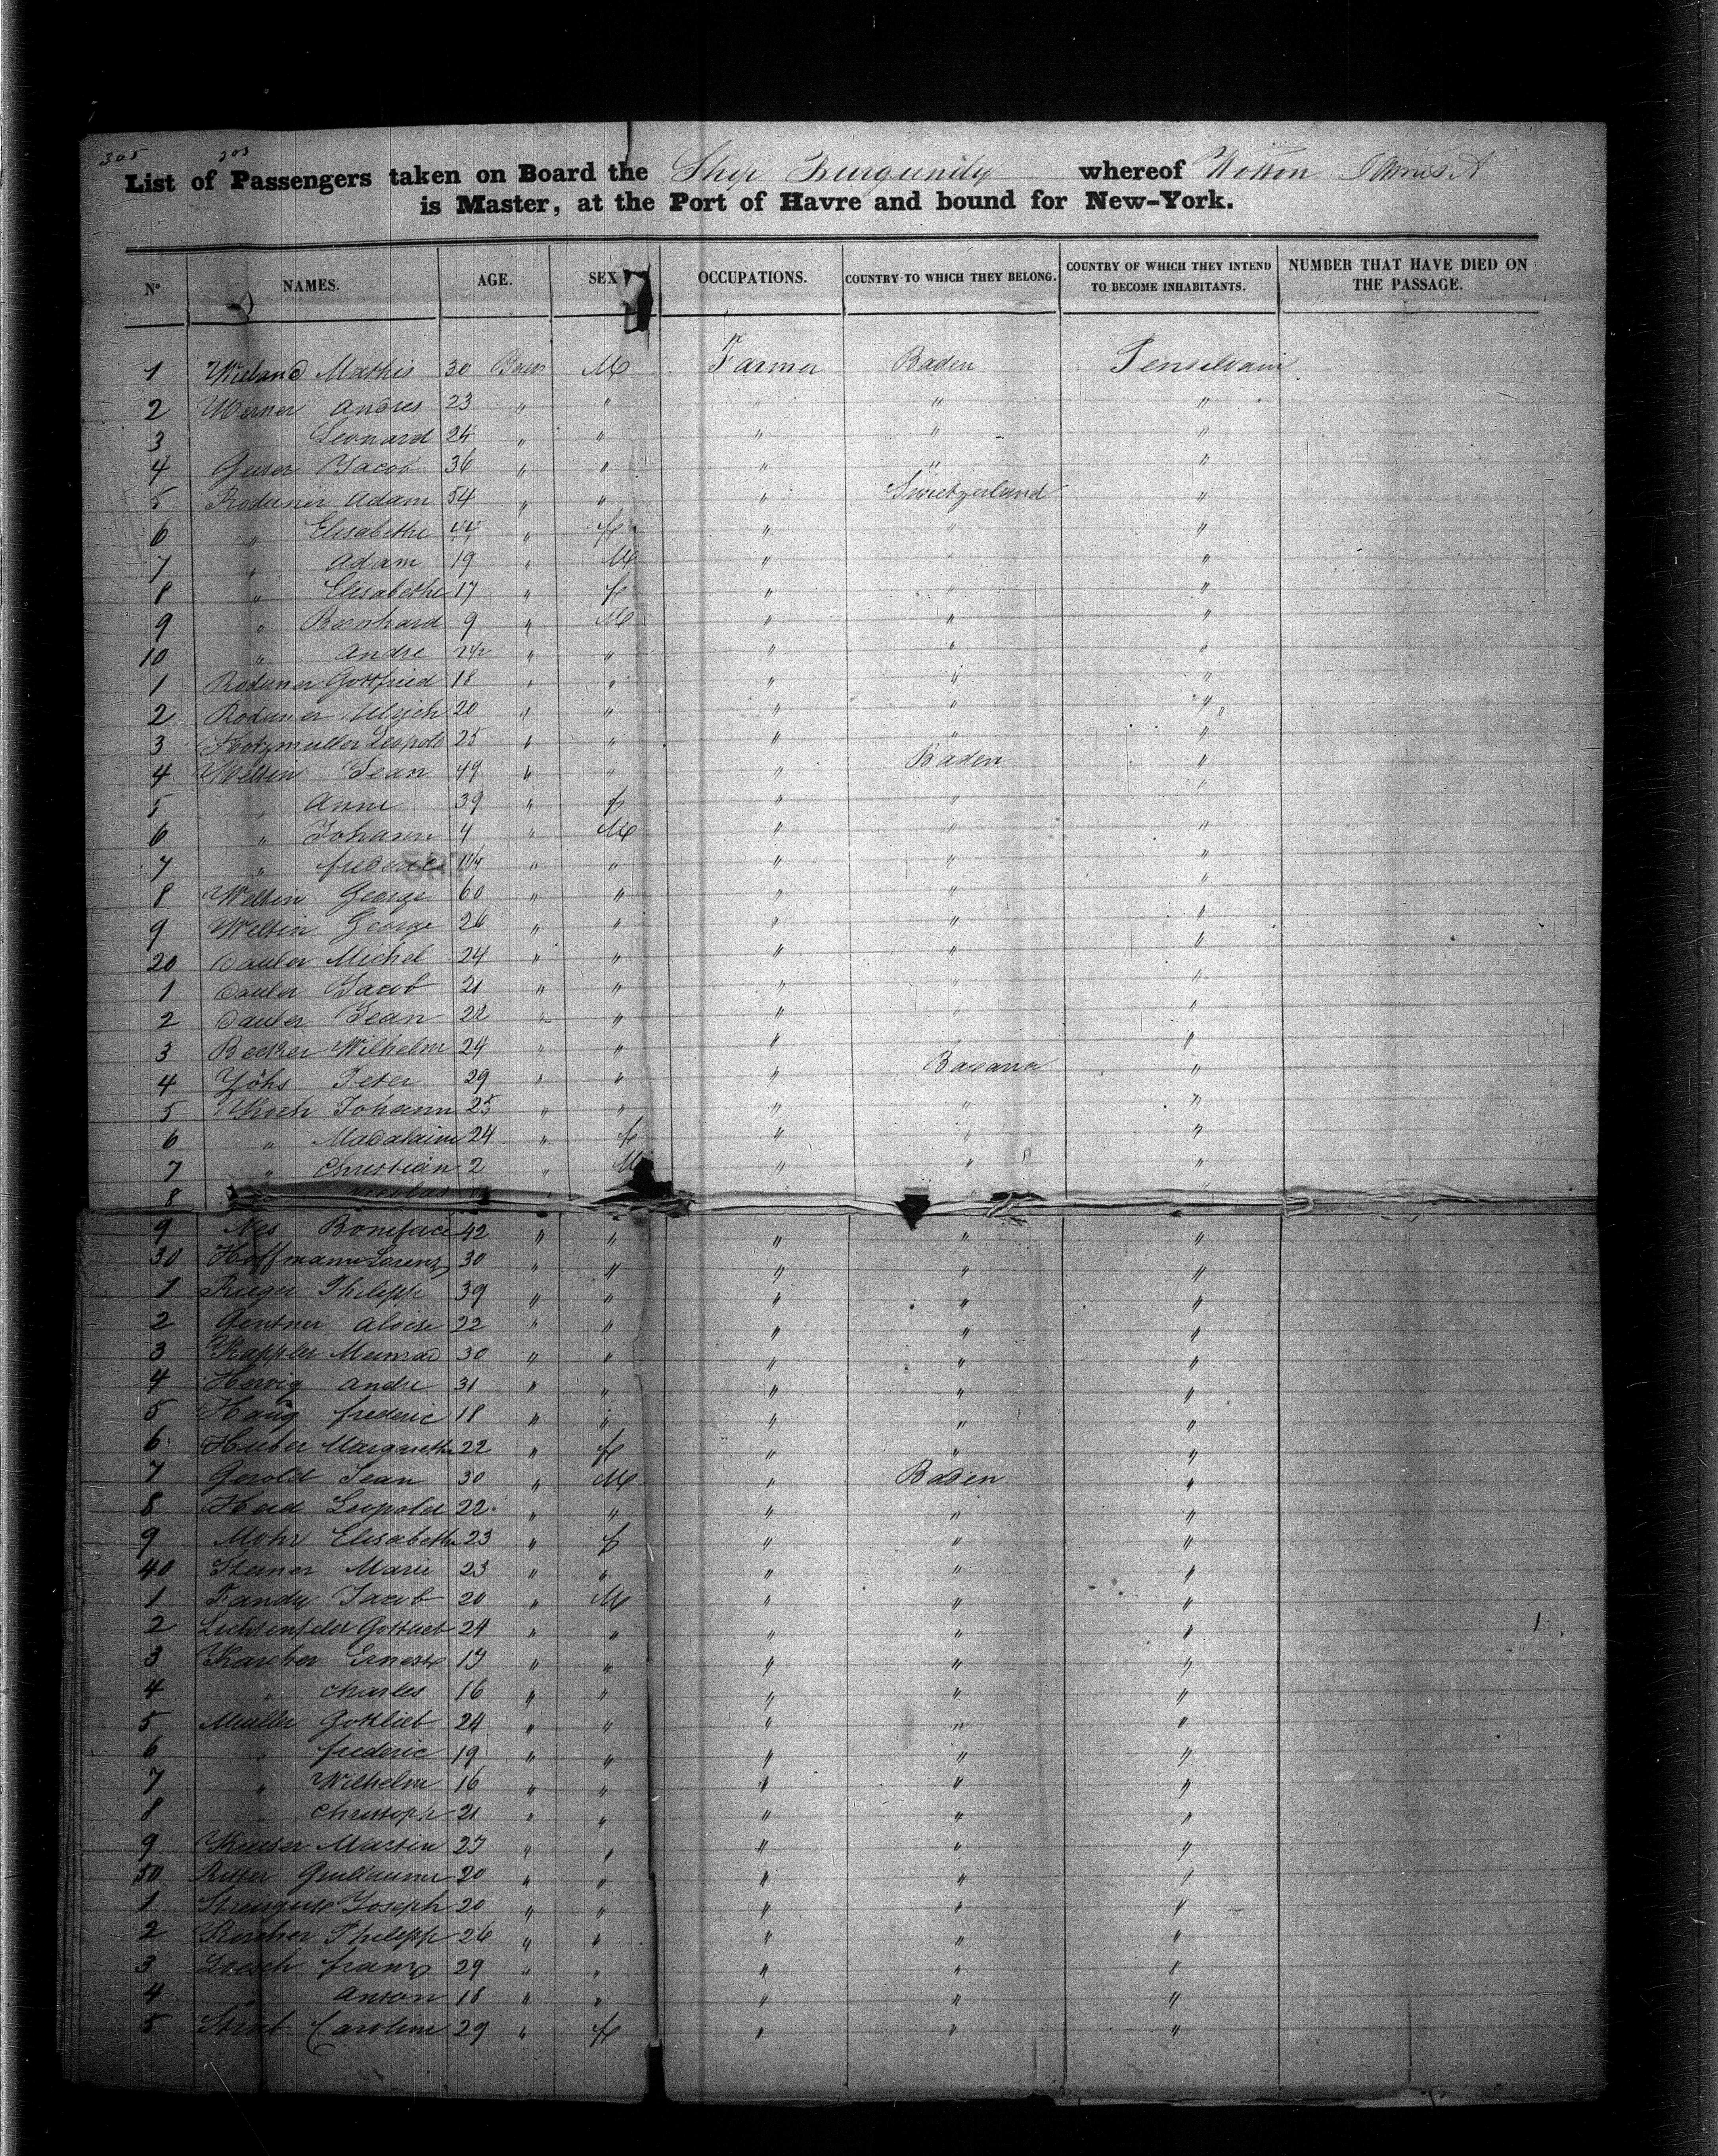 305 303
List of Passengers taken on Board the Ship Burgundy whereof Wotton James A
is Master, at the Port of Havre and bound for New-York.
Nº NAMES. AGE. SEX OCCUPATIONS. COUNTRY TO WHICH THEY BELONG. COUNTRY OF WHICH THEY INTEND TO BECOME INHABITANTS. NUMBER THAT HAVE DIED ON THE PASSAGE.
1 Wieland Mathis 30 M Farmer Baden Penselvain
2 Werner Andres 23 " " " " "
3 Leonard 24 " " " " "
4 Geiser Jacob 36 " " " " "
5 Roduner Adam 54 " " " Switzerland "
6 " Elisabethe 44 " f " " "
7 " Adam 19 " M " " "
8 " Elisabethe 17 " f " " "
9 " Bernhard 9 " M " " "
10 " Andre 2½ " " " " "
1 Roduner Gottfried 18 " " " " "
2 Roduner Ulrich 20 " " " " "
3 Hotzmuller Leopold 25 " " " " "
4 Weltin Jean 49 " " " Baden "
5 " Anne 39 " f " " "
6 " Johann 4 " M " " "
7 " frederic " " " " "
8 Weltin George 60 " " " " "
9 Weltin George 26 " " " " "
20 Dauber Michel 24 " " " " "
1 Dauber Jacob 21 " " " " "
2 Dauber Jean 22 " " " " "
3 Becker Wilhelm 24 " " " "
4 Yöhs Peter 29 " " " Bavaria "
5 Johann 25 " " " " "
6 " Madalaine 24 " f " " "
7 " Christian 2 " M " " "
8 Nicolas " " "
9 Nes Boniface 42 " " " " "
30 Hoffmann Lorenz 30 " " " " "
1 Rieger Philipp 39 " " " " "
2 Gentner Aloise 22 " " " " "
3 Kappler Meinrad 30 " " " " "
4 Hervig Andre 31 " " " " "
5 Haüg frederic 18 " " " " "
6 Huber Margarethe 22 " f " " "
7 Gerold Jean 30 " M " Baden "
8 Heid Leopold 22 " " " " "
9 Mohr Elisabethe 23 " f " " "
40 Steiner Marie 23 " " " " "
1 Fandy Jacob 20 " M " " "
2 Lichtenfeld Gottlieb 24 " " " " "
3 Karcher Ernest 19 " " " " "
4 " Charles 16 " " " " "
5 Muller Gottlieb 24 " " " " "
6 " frederic 19 " " " " "
7 " Wilhelm 16 " " " " "
8 " Christoph 21 " " " " "
9 Kaiser Martin 27 " " " " "
50 Ritter Guillaume 20 " " " " "
1 Joseph 20 " " " " "
2 Karcher Philipp 26 " " " " "
3 Loesch franz 29 " " " " "
4 " Anton 18 " " " " "
5 Caroline 29 " f " " "